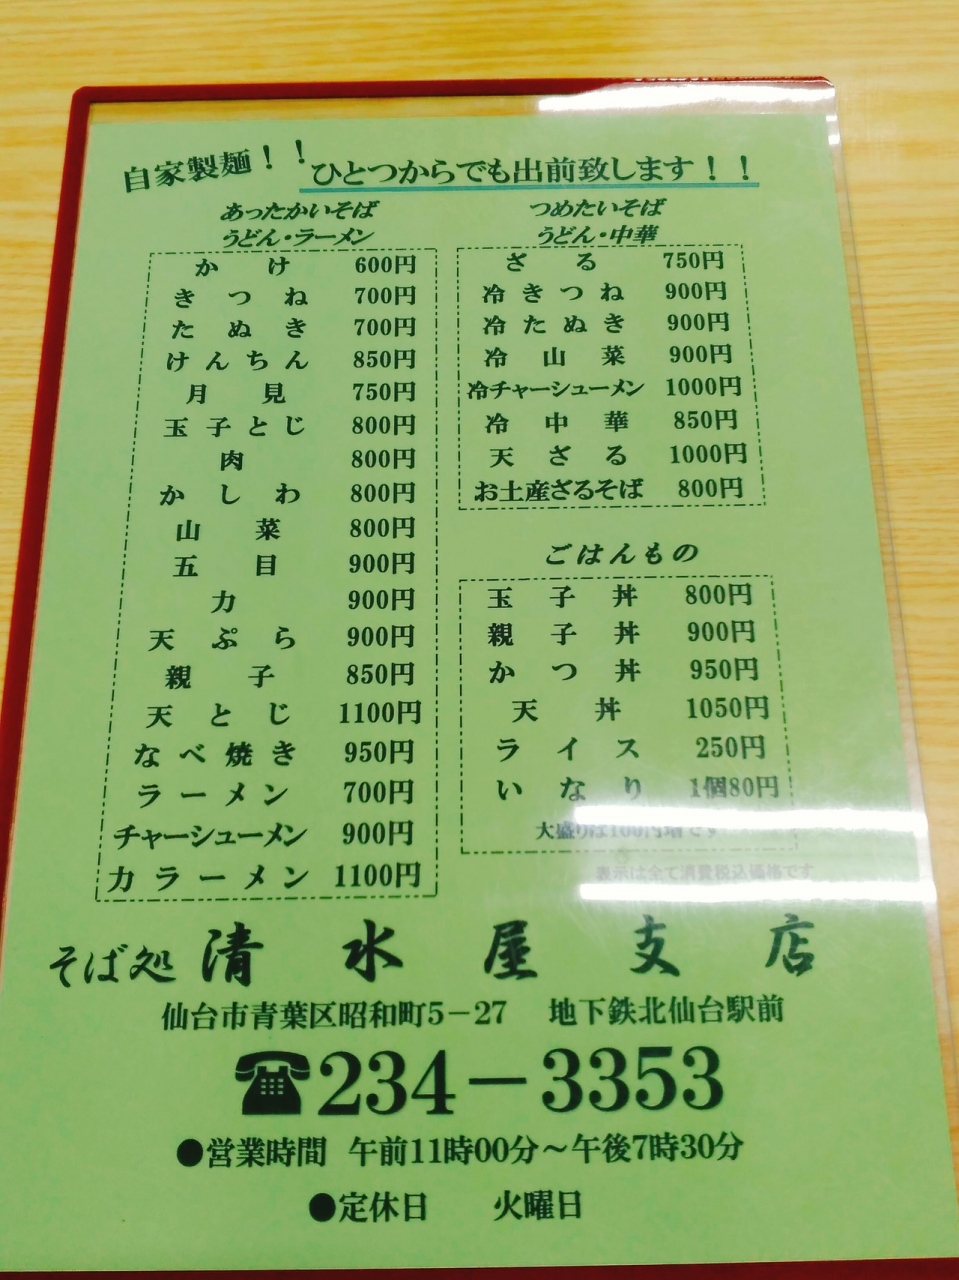 自家製麺！！
ひとつからでも出前致します！！
あったかいそば
うどん・ラーメン
かけ 600円
きつね 700円
たぬき 700円
けんちん 850円
月見 750円
玉子とじ 800円
肉 800円
かしわ 800円
山菜 800円
五目 900円
力 900円
天ぷら 900円
親子 850円
天とじ 1100円
なべ焼き 950円
ラーメン 700円
チャーシューメン 900円
力ラーメン 1100円
つめたいそば
うどん・中華
ざる 750円
冷きつね 900円
冷たぬき 900円
冷山菜 900円
冷チャーシューメン 1000円
冷中華 850円
天ざる 1000円
お土産ざるそば 800円
ごはんもの
玉子丼 800円
親子丼 900円
かつ丼 950円
天丼 1050円
ライス 250円
いなり 1個80円
大盛りは100円増です
表示は全て消費税込価格です
そば処 清水屋支店
仙台市青葉区昭和町5－27 地下鉄北仙台駅前
☎234－3353
●営業時間 午前11時00分～午後7時30分
●定休日 火曜日